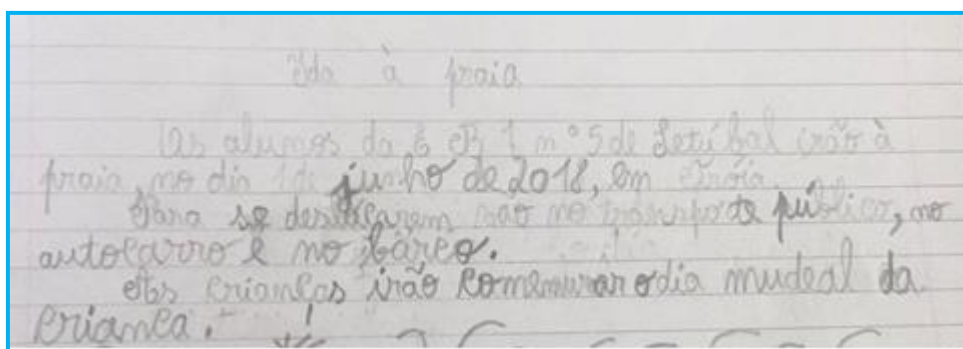 Ida à praia
Os alunos da EB 1 nº 5 de Setúbal irão à
praia, no dia 1 de junho de 2018, em Tróia.
Para se deslocarem vão no transporte público, no
autocarro e no barco.
As crianças irão comemurar o dia mudeal da
criança.